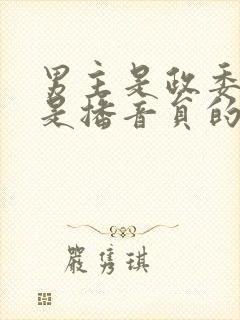 男主是政委
是播音员的
严隽琪